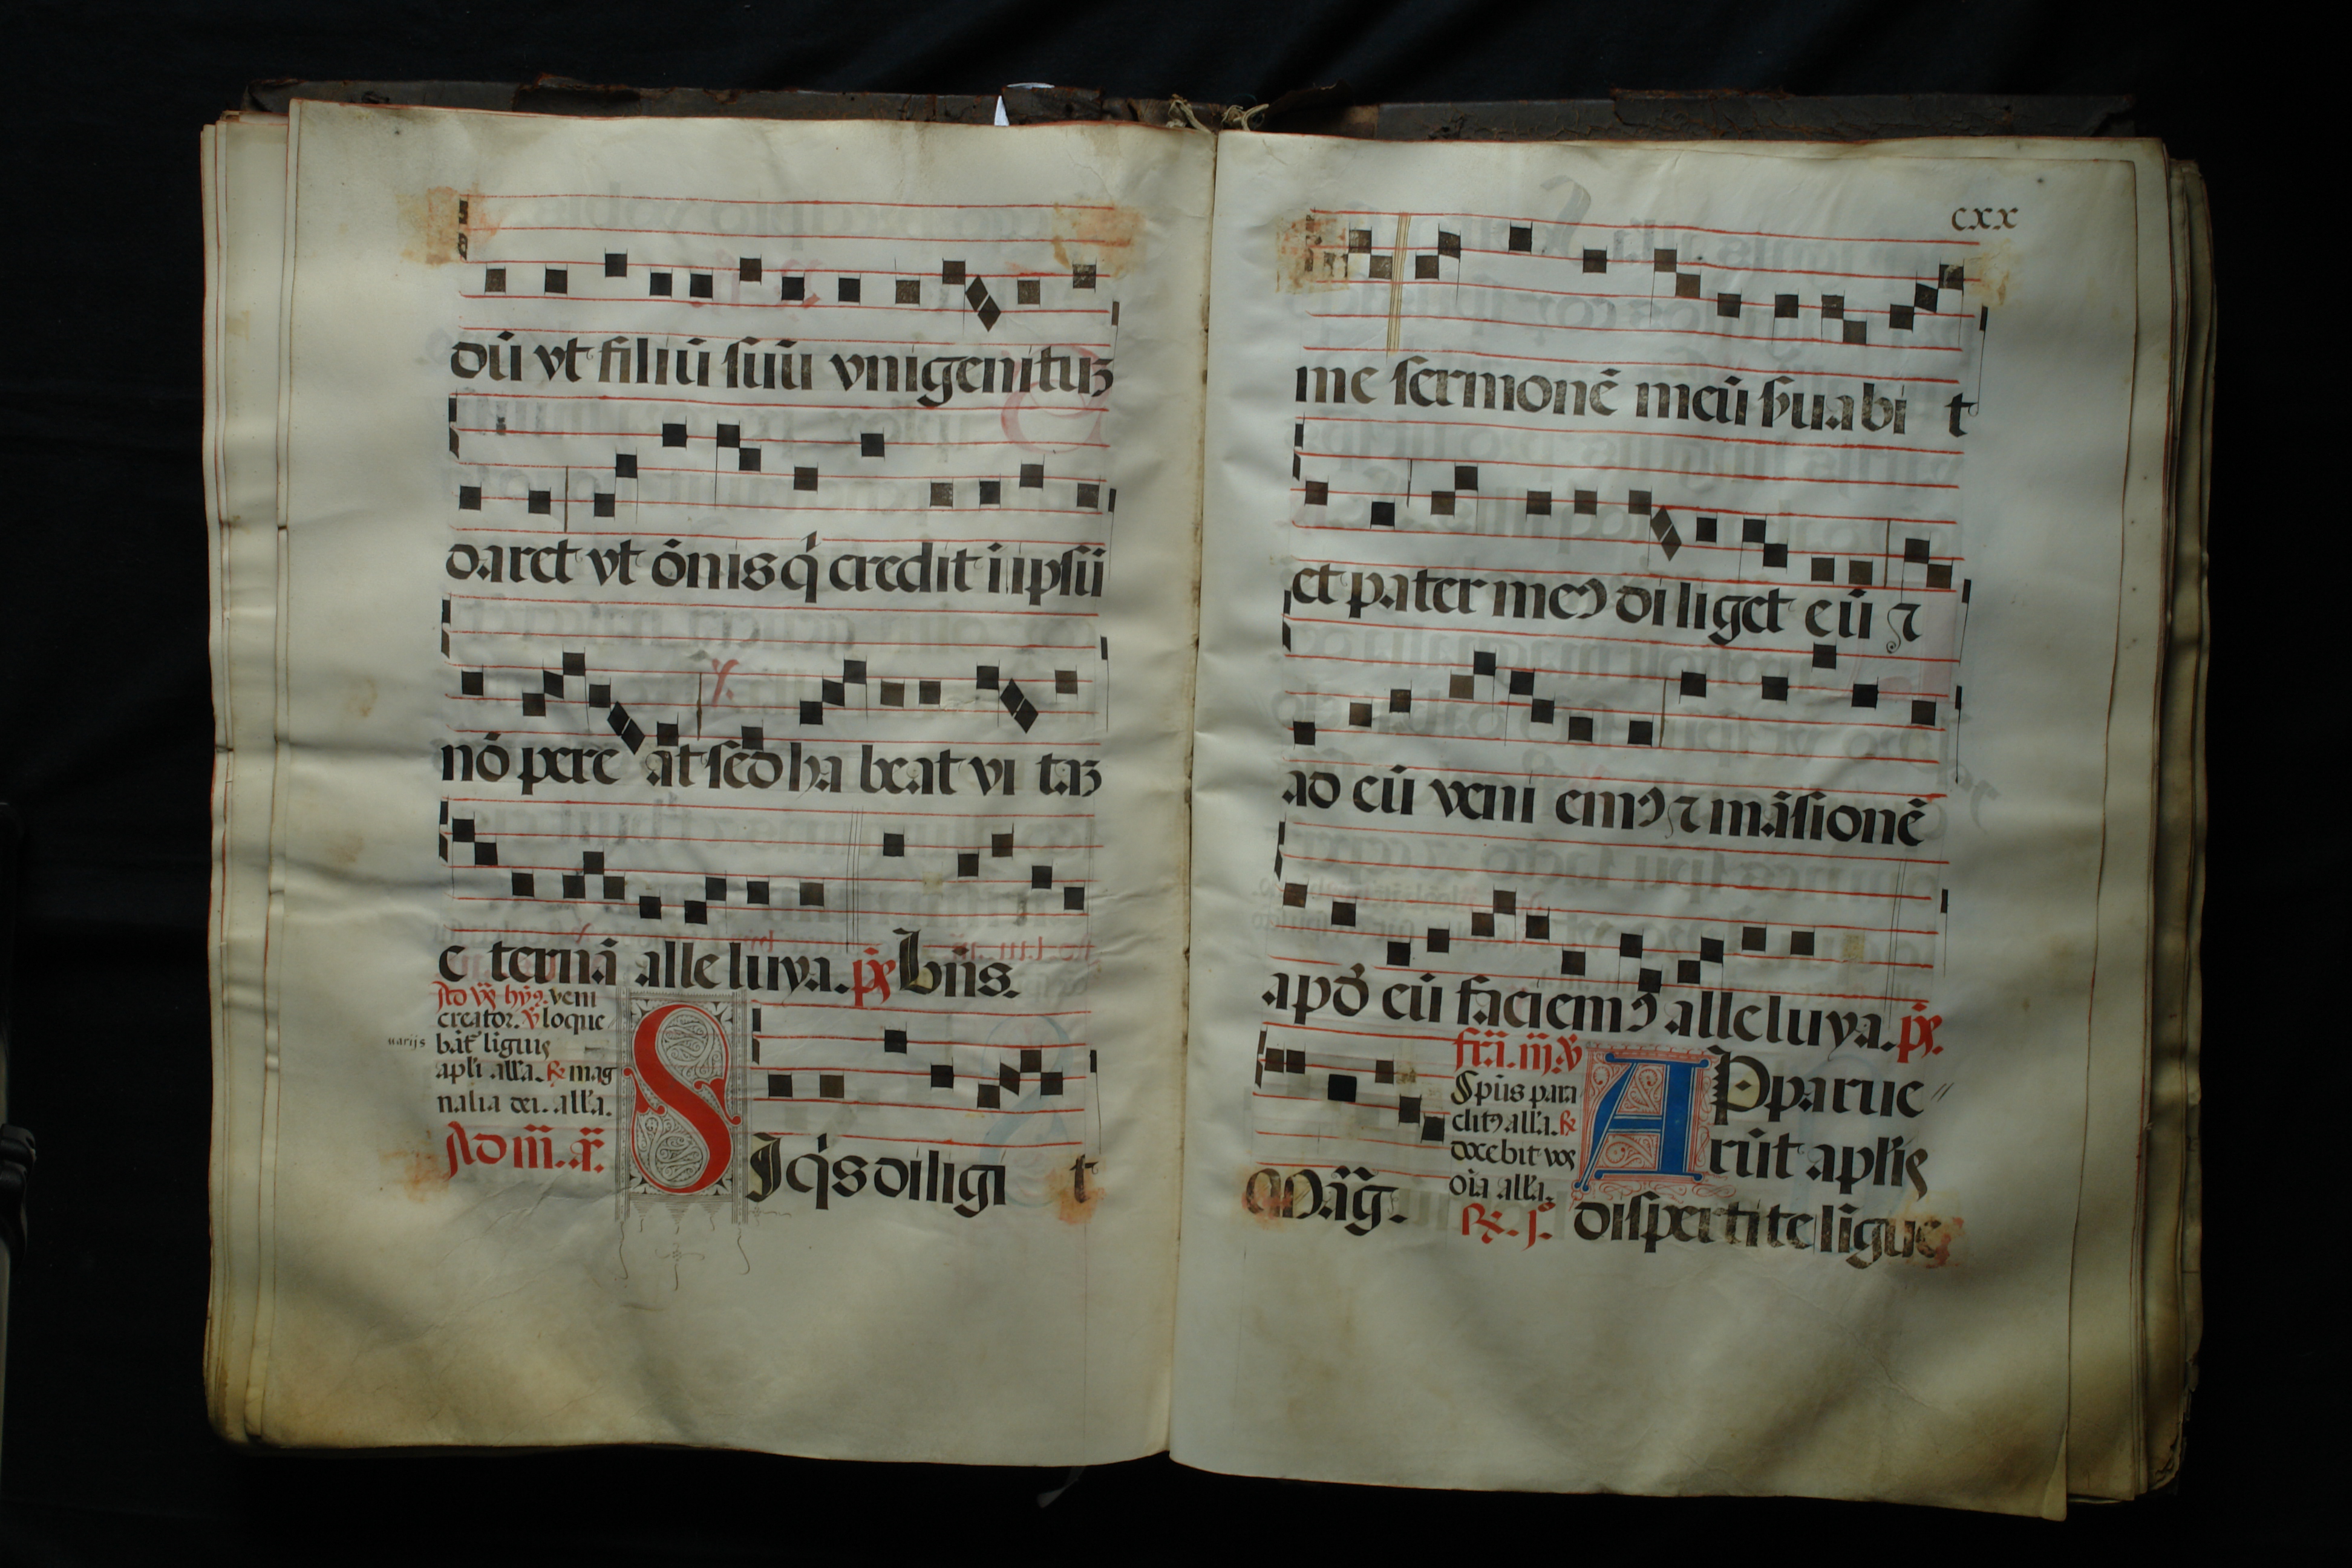 dū vt filiū suū vnigenituꝫ
daret vt ōnis q́ credit i ipsū
nō pere at sed ha beat vi taꝫ
e ternā alleluya. p̄s Bn̄s.
Ad vꝰ hyꝰ. veni
creator. ℣ loque
uarijs
bāt liguis
apli all'a. ℟ mag
nalia dei. all'a.
Ad m̄. a͞.
SI q́s diligi t
cxx
me sermonē meū ẜuabi t
et pater meꝰ diliget eū ⁊
ad eū veni emꝰ ⁊ māsionē
apd̓ eū faciemꝰ alleluya. p̄s.
Māḡ.
fr̄a. iij. ℣
Spūs para
clitꝰ all'a. ℟
docebit vos
oīa all'a.
APparue
rūt aplis
dispertite ligue